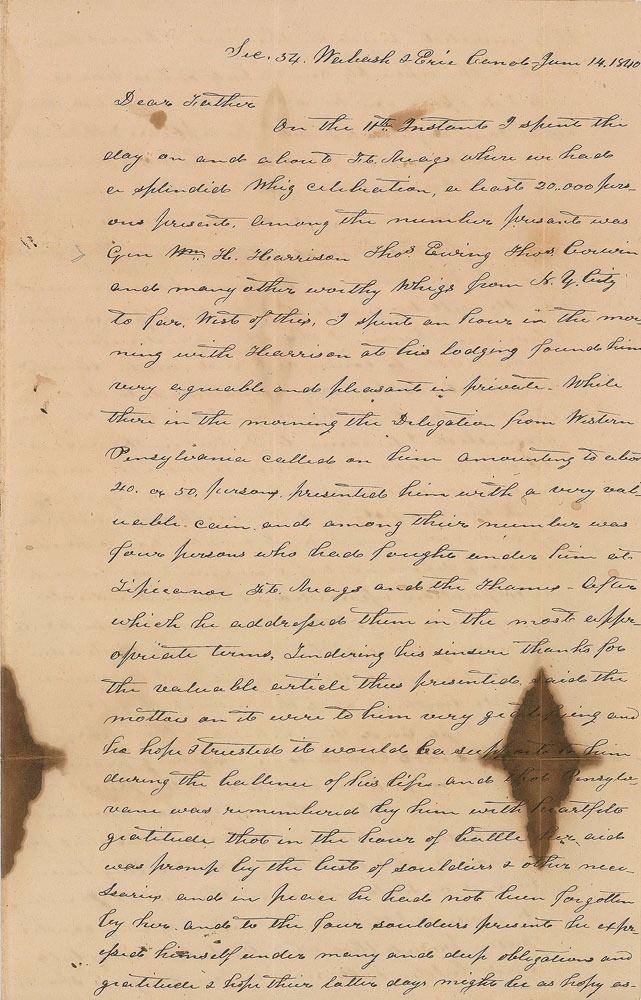 Sec. 54. Wabash & Erie Canal June 14, 1840
Dear Father
On the 11th Instant I spent the
day on and about Ft. Meags where we had
a splendid Whig celibration, a least 20,000 pers-
ons present, among the number present was
Gen Wm. H. Harrison Thos. Ewing Thos. Corwin
and many other worthy Whigs from N. Y. City
to far, West of this, I spent an hour in the mor
ning with Harrison at his lodging found him
very agreable and pleasant in private - While
there in the morning the Deligation from Western
Pensylvania called on him amounting to abo
40. or 50, persons, presented him with a very val
uable cain and among their number was
four persons who had fought under him at
Tipicanoe Ft. Meags and the Thames - After
which he addressed them in the most appr
opriate terms, Tendering his sinsere thanks for
the valuable article thus presented, said the
mottaes on it were to him very gratifying and
he hope & trusted it would be a support to him
during the ballence of his life and that Pensylv-
vana was remembered by him with heartfelt
gratitude that in the hour of battle her aid
was promp by the best of souldiers & other nece-
saries and in peace he had not been forgotten
by her. and to the four souldiers present he expr-
essed himself under many and deep obligations and
gratitude & hope their latter days might be as hapy as-